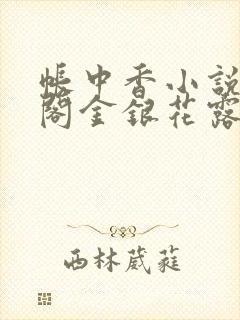 帳中香小說
閣金銀花露
西林葳蕤